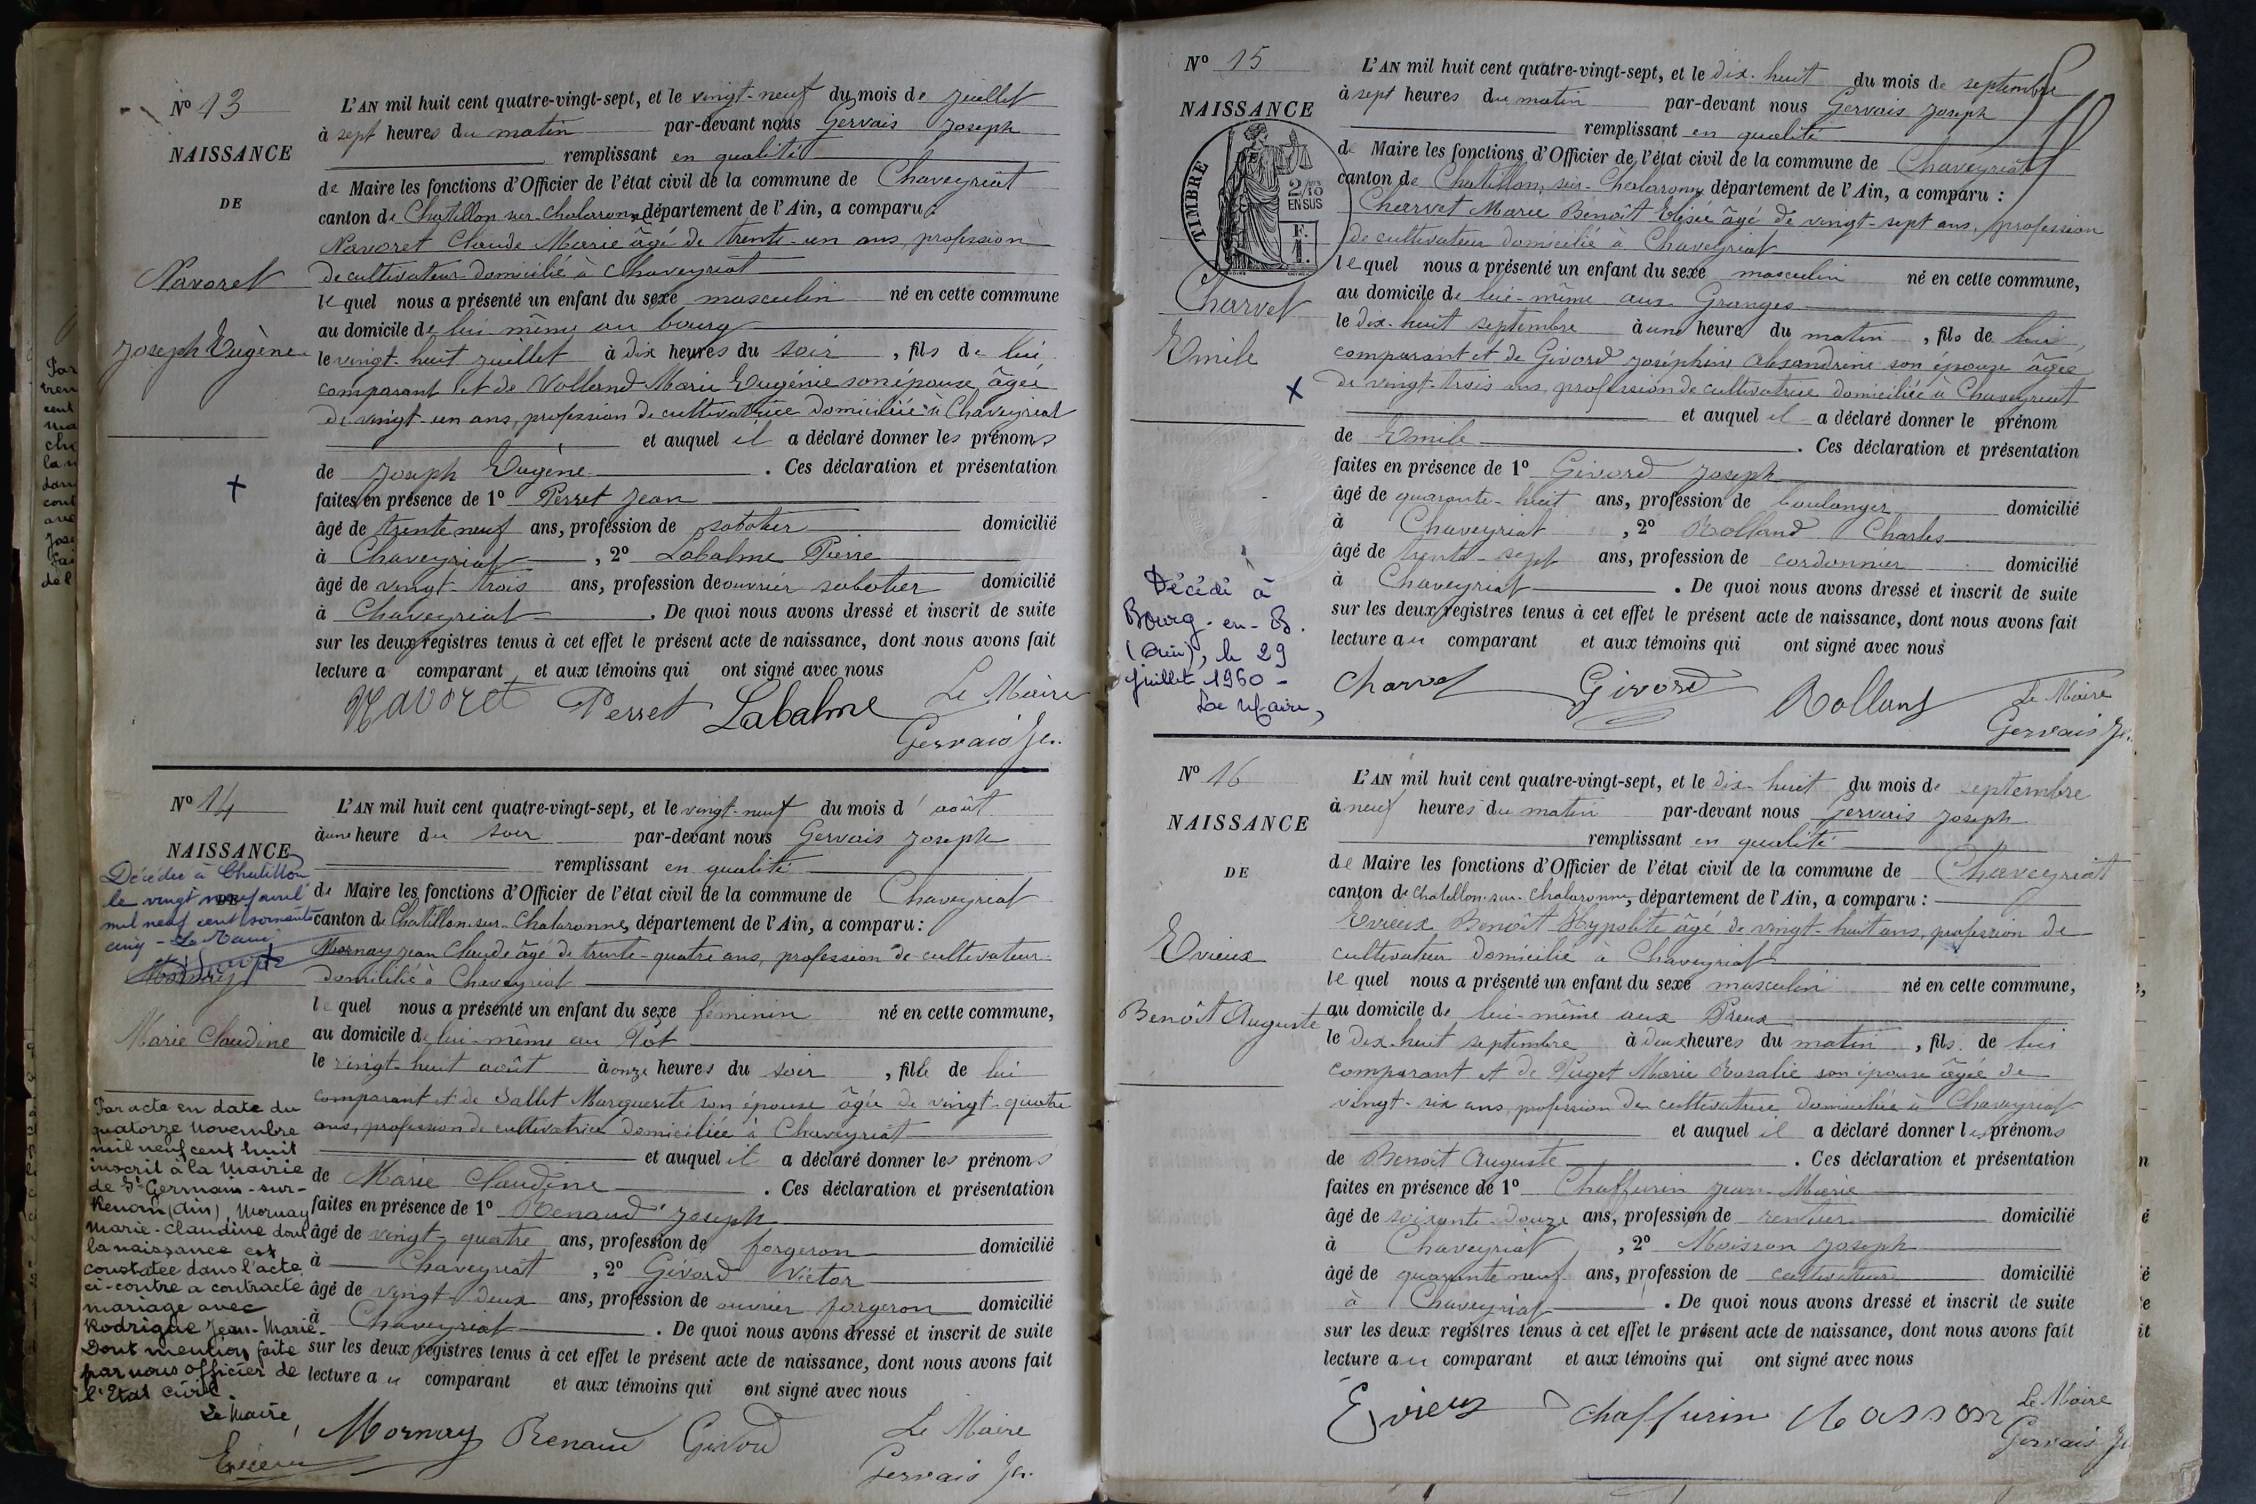 Nº 13
NAISSANCE
DE
Navoret
Joseph Eugène
L'AN mil huit cent quatre-vingt-sept, et le vingt-neuf du mois de juillet
à sept heures du matin par-devant nous Gervais Joseph
remplissant en qualité
de Maire les fonctions d'Officier de l'état civil de la commune de Chaveyriat
canton de Chatillon-sur-Chalaronne, département de l'Ain, a comparu :
Navoret Claude Marie âgé de trente-un ans, profession
de cultivateur domicilié à Chaveyriat
lequel nous a présenté un enfant du sexe masculin né en cette commune
au domicile de lui-même au bourg
le vingt-huit juillet à dix heures du soir, fils de lui
comparant et de Volland Marie Eugénie son épouse, âgée
de vingt-un ans, profession de cultivatrice domiciliée à Chaveyriat
et auquel il a déclaré donner les prénoms
de Joseph Eugène. Ces déclaration et présentation
faites en présence de 1º Perret Jean
âgé de trente neuf ans, profession de sabotier domicilié
à Chaveyriat, 2º Labalme Pierre
âgé de vingt-trois ans, profession de ouvrier sabotier domicilié
à Chaveyriat. De quoi nous avons dressé et inscrit de suite
sur les deux registres tenus à cet effet le présent acte de naissance, dont nous avons fait
lecture a comparant et aux témoins qui ont signé avec nous
Navoret Perret Labalme Le Maire
Gervais Jh.
Nº 14
NAISSANCE
DE
Décédée à Chatillon
le vingt neuf avril
mil neuf cent soixante
cinq - Le Maire
Mornay
Marie Claudine
Par acte en date du
quatorze Novembre
mil neuf cent huit
inscrit à la Mairie
de St Germain-sur-
Renom (Ain), Mornay
Marie-Claudine dont
la naissance est
constatée dans l'acte
ci-contre a contracté
mariage avec
Rodrigue Jean-Marie.
Dont mention faite
par nous officier de
l'Etat civil.
Le Maire,
Evieux
L'AN mil huit cent quatre-vingt-sept, et le vingt-neuf du mois d'août
à une heure du soir par-devant nous Gervais Joseph
remplissant en qualité
de Maire les fonctions d'Officier de l'état civil de la commune de Chaveyriat
canton de Chatillon-sur-Chalaronne, département de l'Ain, a comparu :
Mornay Jean Claude âgé de trente-quatre ans, profession de cultivateur
domicilié à Chaveyriat
lequel nous a présenté un enfant du sexe féminin né en cette commune,
au domicile de lui-même au Tôt
le vingt-huit août à onze heures du soir, fille de lui
comparant et de Sallet Marguerite son épouse âgée de vingt-quatre
ans, profession de cultivatrice domiciliée à Chaveyriat
et auquel il a déclaré donner les prénoms
de Marie Claudine. Ces déclaration et présentation
faites en présence de 1º Renaud Joseph
âgé de vingt-quatre ans, profession de forgeron domicilié
à Chaveyriat, 2º Givord Victor
âgé de vingt-deux ans, profession de ouvrier forgeron domicilié
à Chaveyriat. De quoi nous avons dressé et inscrit de suite
sur les deux registres tenus à cet effet le présent acte de naissance, dont nous avons fait
lecture au comparant et aux témoins qui ont signé avec nous
Mornay Renaud Givord Le Maire
Gervais Jh.
Nº 15
NAISSANCE
TIMBRE
2/10
EN SUS
F.
1.
Charvet
Emile
Décédé à
Bourg-en-B.
(Ain), le 29
juillet 1960 -
Le Maire,
L'AN mil huit cent quatre-vingt-sept, et le dix-huit du mois de septembre
à sept heures du matin par-devant nous Gervais Joseph
remplissant en qualité
de Maire les fonctions d'Officier de l'état civil de la commune de Chaveyriat
canton de Chatillon-sur-Chalaronne, département de l'Ain, a comparu :
Charvet Marie Benoît Elisée âgé de vingt-sept ans, profession
de cultivateur domicilié à Chaveyriat
lequel nous a présenté un enfant du sexe masculin né en cette commune,
au domicile de lui-même aux Granges
le dix-huit septembre à une heure du matin, fils de lui
comparant et de Givord Joséphine Alexandrine son épouse âgée
de vingt-trois ans, profession de cultivatrice domiciliée à Chaveyriat
et auquel il a déclaré donner le prénom
de Emile. Ces déclaration et présentation
faites en présence de 1º Givord Joseph
âgé de quarante-huit ans, profession de boulanger domicilié
à Chaveyriat, 2º Rolland Charles
âgé de trente-sept ans, profession de cordonnier domicilié
à Chaveyriat. De quoi nous avons dressé et inscrit de suite
sur les deux registres tenus à cet effet le présent acte de naissance, dont nous avons fait
lecture au comparant et aux témoins qui ont signé avec nous
Charvet Givord Rolland Le Maire
Gervais Jh.
Nº 16
NAISSANCE
DE
Evieux
Benoît Auguste
L'AN mil huit cent quatre-vingt-sept, et le dix-huit du mois de septembre
à neuf heures du matin par-devant nous Gervais Joseph
remplissant en qualité
de Maire les fonctions d'Officier de l'état civil de la commune de Chaveyriat
canton de Chatillon-sur-Chalaronne, département de l'Ain, a comparu :
Evieux Benoît Hypolite âgé de vingt-huit ans, profession de
cultivateur domicilié à Chaveyriat
lequel nous a présenté un enfant du sexe masculin né en cette commune,
au domicile de lui-même aux Preux
le dix-huit septembre à deux heures du matin, fils de lui
comparant et de Puget Marie Rosalie son épouse âgée de
vingt-six ans, profession de cultivatrice domiciliée à Chaveyriat
et auquel il a déclaré donner les prénoms
de Benoît Auguste. Ces déclaration et présentation
faites en présence de 1º Chaffurin Jean-Marie
âgé de soixante-douze ans, profession de rentier domicilié
à Chaveyriat, 2º Moisson Joseph
âgé de quarante neuf ans, profession de cultivateur domicilié
à Chaveyriat. De quoi nous avons dressé et inscrit de suite
sur les deux registres tenus à cet effet le présent acte de naissance, dont nous avons fait
lecture au comparant et aux témoins qui ont signé avec nous
Evieux Chaffurin Masson Le Maire
Gervais Jh